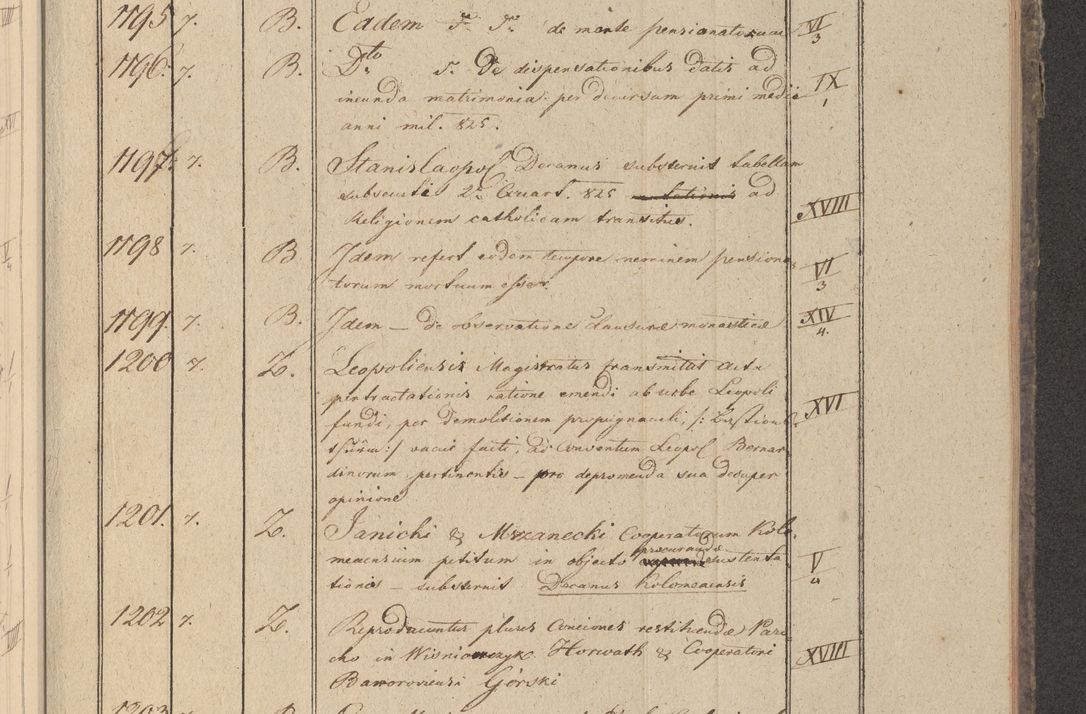 1195 7. B. Eadem de morte pensionatorum VI/3
1196. 7. B. Dto De dispensationibus datis ad
ineunda matrimonia per decursum primi medii IX/1
anni mil. 825.
1197. 7. B. Stanislaopol Decanus substernit tabellam
subsecuti 2i Quart. 825 ad
Religionem catholicam transitus. XVIII
1198 7. B. Idem refert eodem tempore neminem pensiona-
torum mortuum esse. VI/3
1199. 7. B. Idem — de observatione clausurae monasticae XIV/4.
1200 7. Z. Leopoliensis Magistratus transmittit acta
pertractationis ratione emendi ab urbe Leopoli
fundi, per demolitionem propugnaculi, /: XVI
:/ vacui facti, ad Conventum Leopol Bernar-
dinorum pertinentis — pro depromenda sua desuper
opinione
1201. 7. Z. Janicki & Mrzanecki Cooperatorum Kolo-
meaensium petitum in objecto procurandae sustenta- V/4
tionis — substernit Decanus Kolomeaensis
1202 7. Z. Reproducuntur plures Conciones restituendae Paro-
cho in Wisniowczyk Horwath & Cooperatori XVIII
Baworoviensi Górski
1203